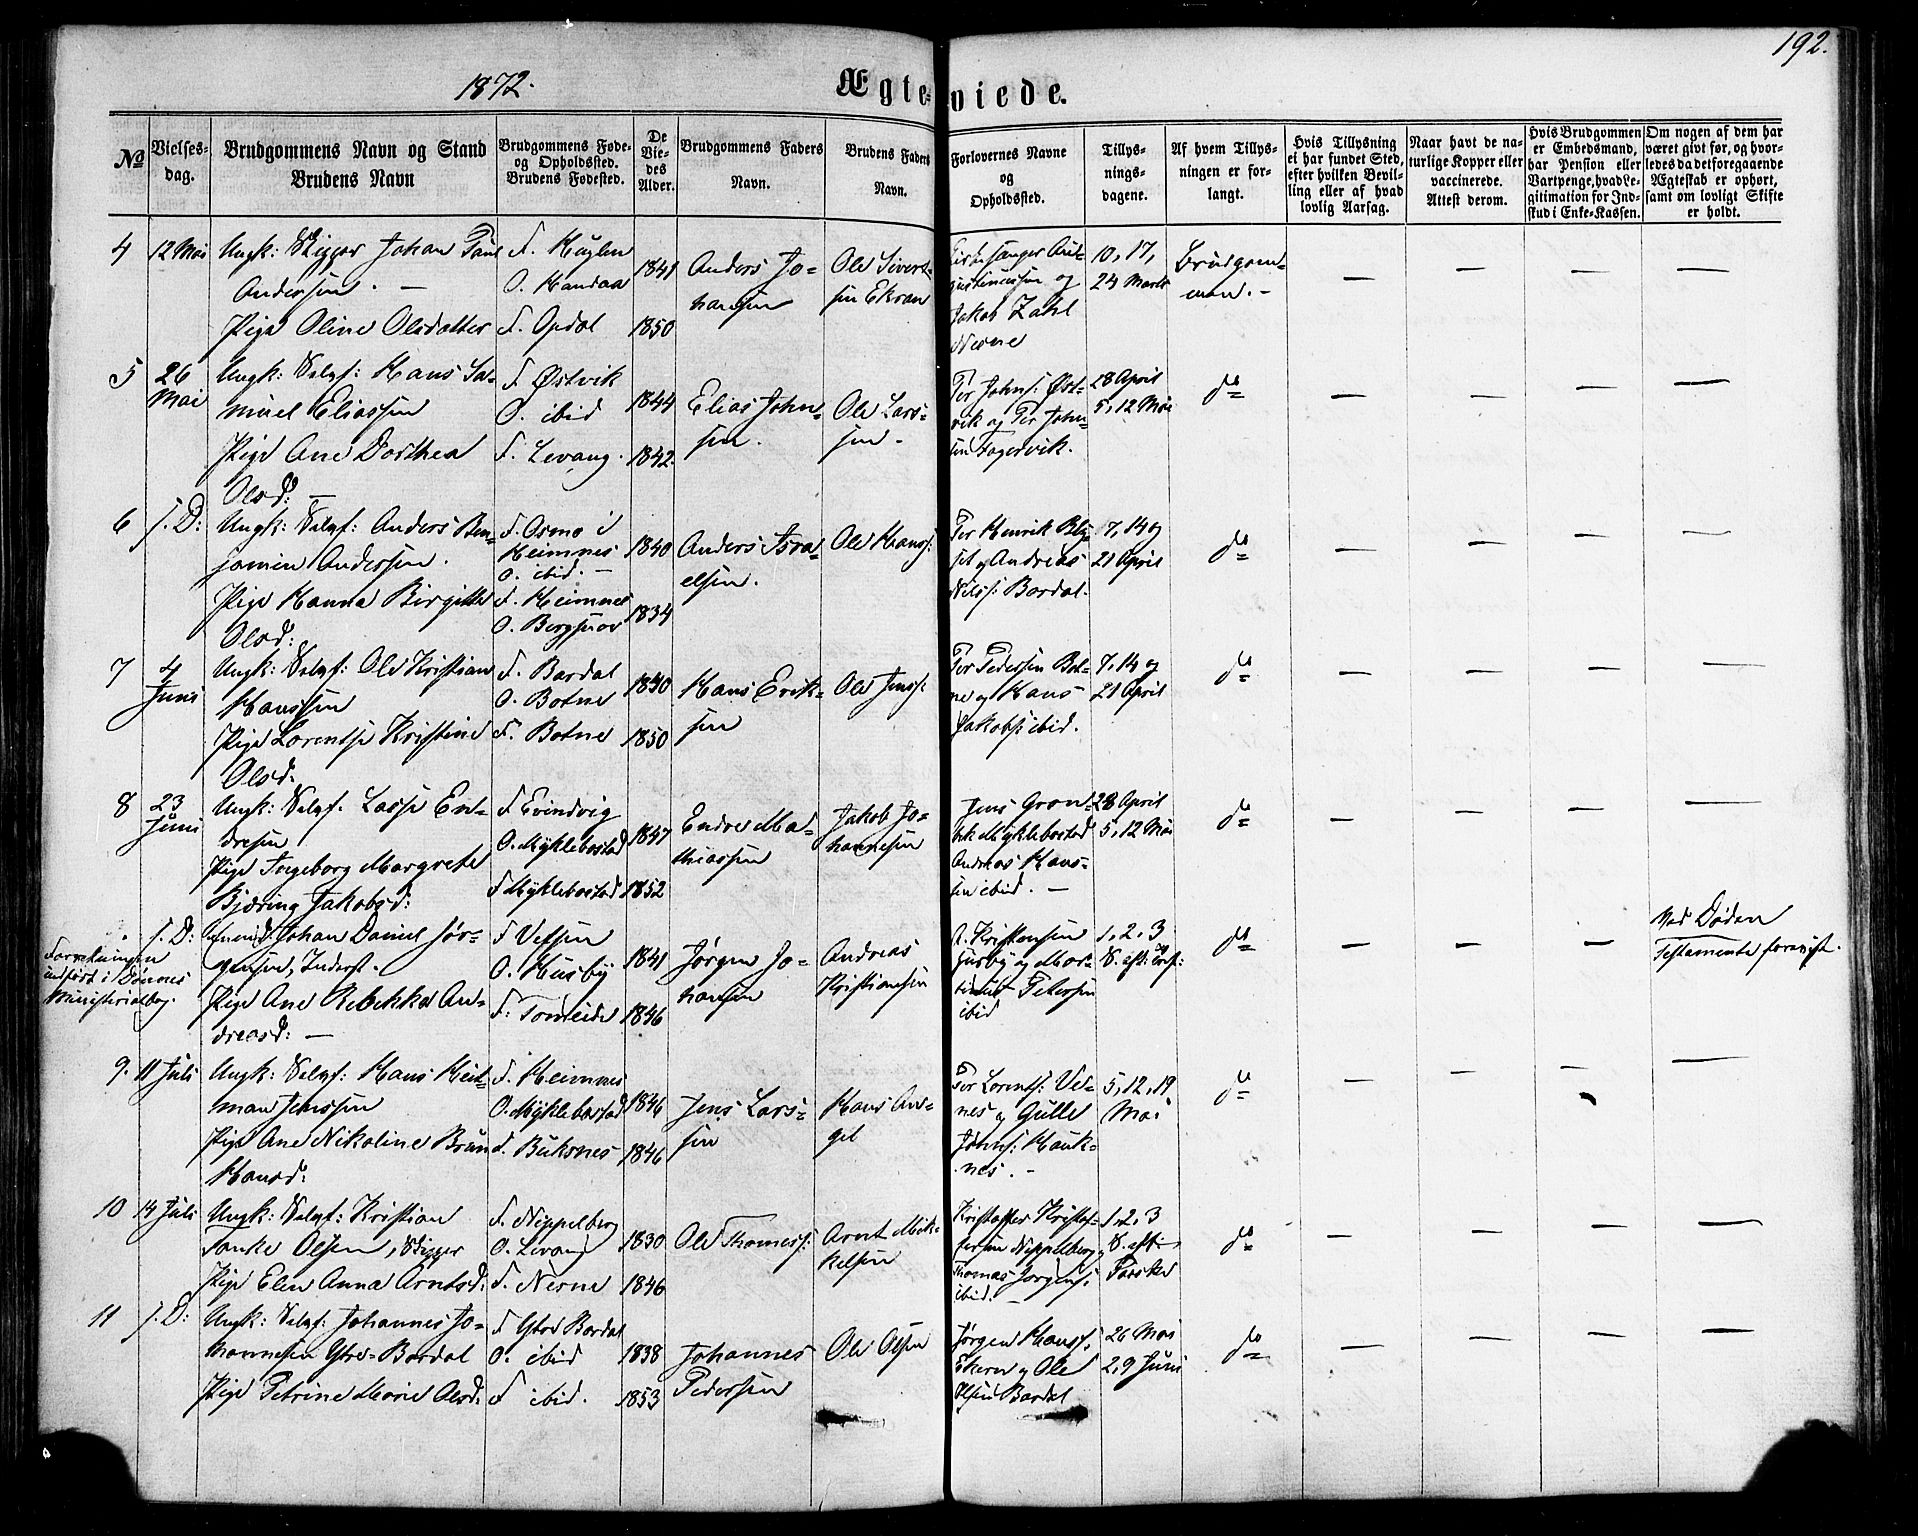 192.
1872.
Ægteviede.
No
Vielses-
dag.
Brudgommens Navn og Stand
Brudens Navn
Brudgommens Føde-
og Opholdssted.
Brudens Fødested.
De
Vie-
des
Alder.
Brudgommens Faders
Navn.
Brudens Faders
Navn.
Forlovernes Navne
og
Opholdssted.
Tillys-
nings-
dagene.
Af hvem Tillys-
ningen er for-
langt.
Hvis Tillysning
ei har fundet Sted,
efter hvilken Bevil-
ling eller af hvad
lovlig Aarsag.
Naar havt de na-
turlige Kopper eller
vaccinerede.
Attest derom.
Hvis Brudgommen
er Embedsmand,
har Pension eller
Vartpenge, hvad Le-
gitimation for Ind-
skud i Enke-Kassen.
Om nogen af dem har
været givt før, og hvor-
ledes da det foregaaende
Ægteskab er ophørt,
samt om lovligt Skifte
er holdt.
4
12 Mai
Ungk: Bygger Johan Paul
Andersen. —
Pige Oline Olsdatter
F. Huglen
O. Handaa
F. Opdal
1841
1850
Anders Jo-
hansen
Ole Sivert-
sen Ekran
Kirkesanger Au-
gustinussen og
Jakob Zahl
Nesne
10, 17,
24 Marts
Brudgom-
men. -
— — — —
5
26
Mai
Ungk: Selvf: Hans Sa-
muel Eliassen
Pige Ane Dorthea
Olsd: —
F. Østvik
O. ibid
F. Levang.
1844
1842.
Elias John-
sen.
Ole Lars-
sen.
Per Johns: Øst-
vik og Per John-
sen Fagervik.
28 April
5, 12 Mai
do
— — — —
6
s. D:
Ungk: Selvf: Anders Ben-
jamin Andersen.
Pige Hanna Birgitte
Olsd:
F. Osmo i
Heimnes
O. ibid. —
F. Heimnes
O.
1840
1834
Anders Isra-
elsen.
Ole Hanss:
Per Henrik
og Andreas
Nilss: Bardal.
7, 14 og
21 April
do
— — — —
7
4
Juni
Ungk: Selvf: Ole Kristian
Hanssen
Pige Lorentse Kristine
Olsd.
F. Bardal
O. Botne
F. Botne
1850
Hans Erik-
sen
Ole Jenss:
Per Pedersen Bot-
ne og Hans
Jakobs: ibid.
7, 14 og
21 April
do
— — — —
8
23
Juni
Ungk: Selvf. Lasse En-
dresen
Pige Ingeborg Margrete
Bjøring Jakobsd:
F. Evindvig
O. Myklebostad
F. Myklebostad
1847
1852
Endre Ma-
thiassen
Jakob Jo-
hannesen
Jens Grøn-
bek Myklebostad
Andreas Hans-
sen ibid. —
28 April
5, 12 Mai
do
— — — —
Forretningen
indført i Dønnes
Ministerialbog.
s. D:
Johan Daniel Jør-
gensen, Inderst.
Pige Ane Rebekka An-
dreasd: —
F. Vefsen
O. Husby
F. Tomeide
1841
1846
Jørgen Jo-
hansen
Andreas
Kristiansen
A. Kristensen
Husby og Mar-
tinus Petersen
ibid
1, 2, 3
S. eft:
do
— — —
Ved Døden
Testamente forevist.
9.
11 Juli
Ungk: Selvf: Hans Heit-
man Jenssen
Pige Ane Nikoline Brun
Hansd:
F. Heimnes
O. Myklebostad
F. Buksnes
1846
1846
Jens Lars-
sen
Hans An-
gel
Per Lorents: Vet-
nes og Gulle
Johns: Hauk-
nes. -
5, 12, 19
Mai
do
— — — —
10
14 Juli
Ungk: Selvf: Kristian
Tanke Olsen, Bygger
Pige Elen Anna Arntsd:
F. Nippelberg
O. Levang
F. Nesne
1830
1846
Ole Thomess:
Arnt Mik-
kelsen
Kristoffer Kristof-
fersen Nippelberg
Thomas Jørgens:
ibid. —
1, 2, 3
S. eft:
Paaske
do
— — — —
11
s. D:
Ungk: Selvf: Johannes Jo-
hannesen Ytre-Bardal
Pige Petrine Marie Olsd:
F. Ytre Bardal
O. ibid
F. ibid.
1838
1853
Johannes
Pedersen
Ole Olsen
Jørgen Hanss:
Ekern og Ole
Olsen Bardal
26 Mai
2, 9 Juni
do
— — — —